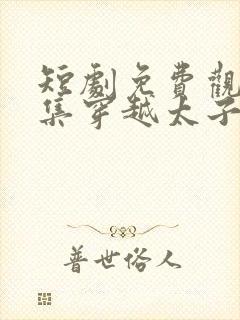 短劇免費觀
集穿越太子
普世俗人